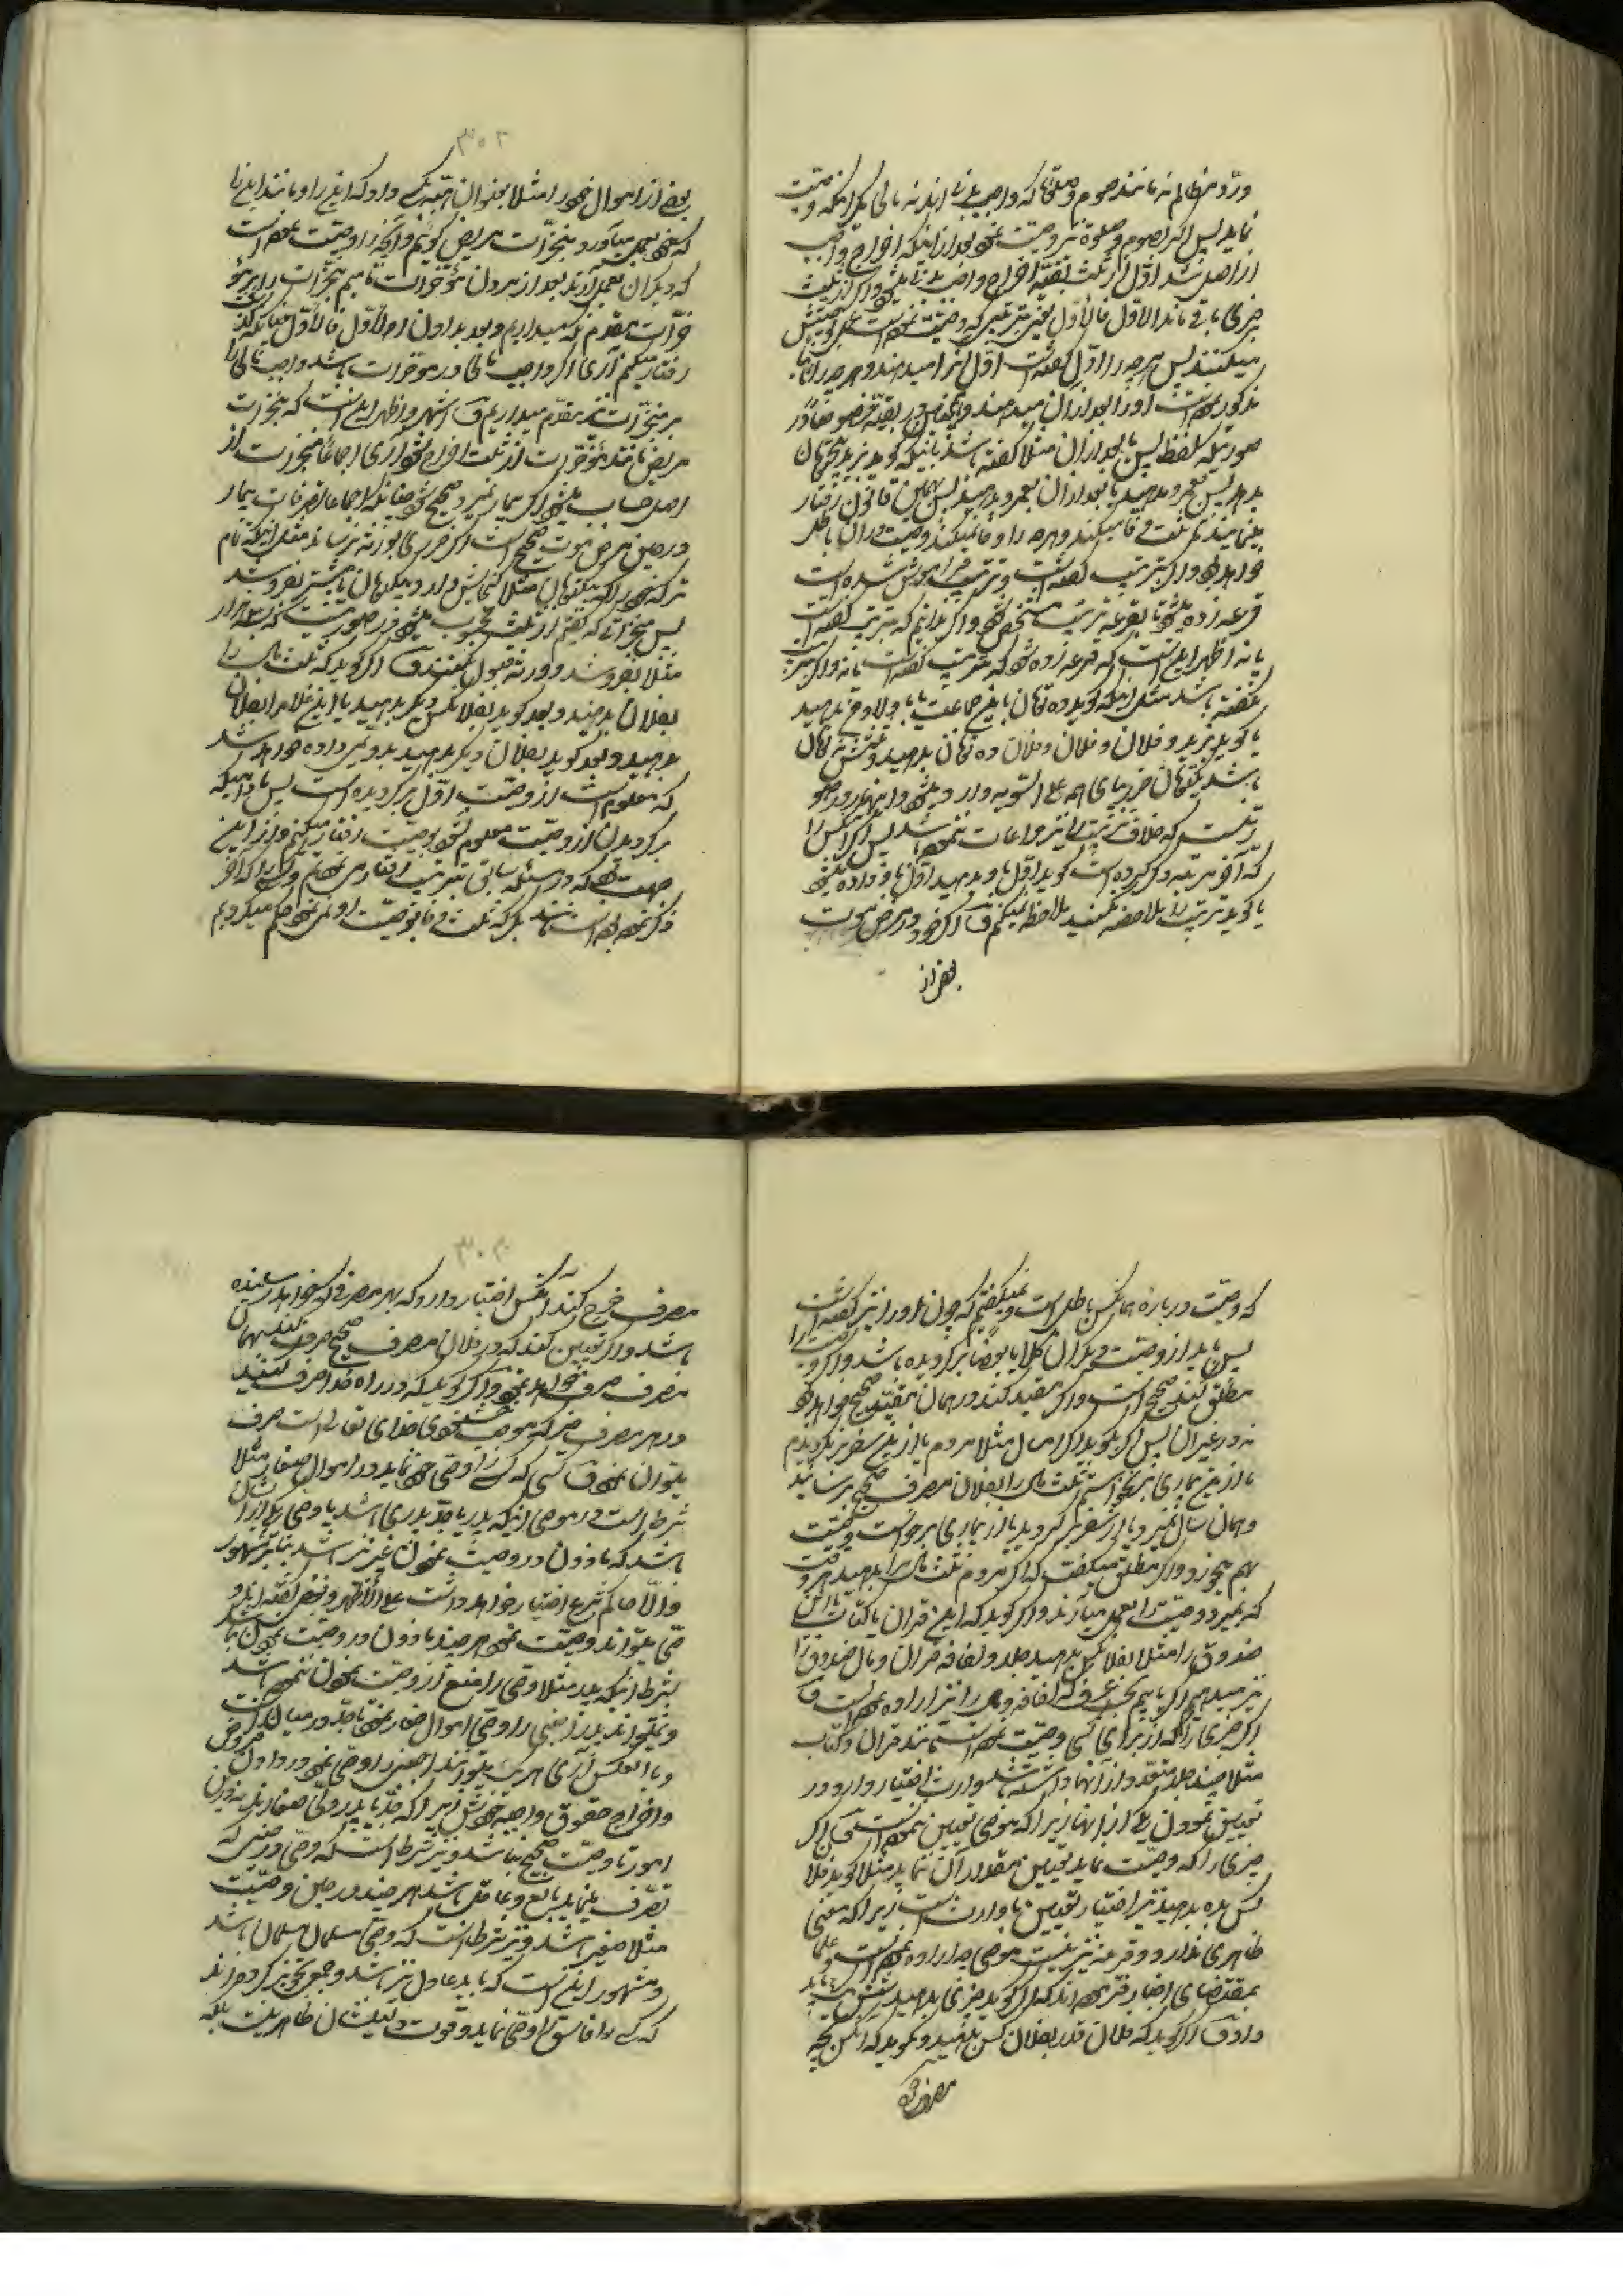 وردّ مظالم نه مانند صوم و صلوة که واجب بدنی‌اند نه مالی مگر اینکه وصیت
نماید پس اگر بصوم و صلوة نیز وصیت نموده بعد از اینکه اخراج واجب
از اصل شد اول از ثلث بقیه اخراج واجب بدنی میشود و اگر از ثلث
چیزی باقی ماند الاول فالاول یعنی بترتیبی که وصیت نموده است عمل بوصیتش
میکنند پس هر چه را اول گفته است اول انرا میدهند و هر چه را ثانیا
مذکور نموده است او را بعد از آن میدهند و همچنین در بقیه خصوصا در
صورتیکه بلفظ پس یا بعد از آن مثلا گفته باشد باینکه گوید بزید پنج تومان
بدهید پس بعمرو بدهید یا بعد از آن بعمرو بدهید پس بهمین قانون رفتار
مینمایند تا ثلث وفا میکند و هر چه را وفا نمیکند وصیت در آن باطل
خواهد بود و اگر بترتیب گفته است و ترتیب فراموش شده است
قرعه زده میشود تا بقرعه ترتیب مشخص شود و اگر ندانیم که بترتیب گفته است
یا نه اظهر این است که قرعه زده شود که بترتیب گفته است یا نه و اگر بترتیب
نگفته باشد مثل اینکه گوید ده تومان باین جماعت یا باولاد من بدهید
یا گوید بزید و فلان و فلان و فلان ده تومان بدهید و ثلثش نه تومان
باشد یکتومان خرجهای همه علی السویه وارد میشود و اینهم در صو
رتیست که خلاف ترتیب را نیز مراعات ننموده باشد پس اگر آنکس را
که آخر مرتبه ذکر کرده است گوید اول باو بدهید اول باو داده میشود
یا گوید ترتیب را ملاحظه نکنید ملاحظه نمیکنیم ف اگر خود در مرض موت
بعض از
بعض از اموال خود را مثلا بعنوان هبه بکسی داد که این را و مانند این را
که خود بعمل میآورد منجزات مریض گوئیم و آنچه را وصیت نموده است
که دیگران بعمل آرند بعد از مردن مؤخرات نامیم منجزات را بر مؤ
خرات مقدم میداریم و بعد بدادن الاول فالاول چنانکه گذشت
رفتار میکنیم آری اگر واجب مالی در مؤخرات باشد واجب مالی را
بر منجزات نیز مقدم میداریم ف اشهر و اظهر این است که منجزات
مریض مانند مؤخرات از ثلث اخراج شود آری اجماعا منجزات از
اصل حساب میشود اگر بیمار نمیرد و صحیح شود چنانکه اجماعا تصرفات بیمار
در حین مرض موت صحیح است اگر ضرری بورثه نرساند مثل اینکه تمام
ترکه خود را که یکتومان مثلا گنجایش دارد بیکتومان یا بیشتر بفروشد
پس منجزاتی که گفتیم از ثلث محسوب میشود در صورتیست که بده دینار
مثلا بفروشد و ورثه قبول نکنند ف اگر گوید که ثلث مال را
بفلان بدهید و بعد گوید بفلانکس دیگر بدهید یا این غلام را بفلان
بدهید و بعد گوید بفلان دیگر بدهید بدویمی داده خواهد شد
که معلوم است از وصیت اول برگردیده است پس مادامیکه
برگردیدن از وصیت معلوم نشود بوصیت رفتار میکنیم و از این
جهت بود که در مسئله سابق بترتیب رفتار می‌نمودیم و کسی را که آخر
ذکر نموده است هر گاه ثلث وفا بوصیت او نمی‌نمود حکم میکردیم
که وصیت درباره همانکس باطل است و نمیگفتیم که چون او را نیز گفته است
پس باید از وصیت دیگران کلا یا بعضا برگردیده باشد و اگر وصیت را
مطلق کند صحیح است و اگر مقید کند در همان مقید صحیح خواهد بود
نه در غیر آن پس اگر بگوید اگر امسال مثلا مردم یا از این سفر برنگردیدم
یا از این بیماری برنخواستم ثلث مال را بفلان مصرف صحیح برسانید
و همان سال نمیرد یا از سفر برگردید یا از بیماری برخواست وصیت
بهم میخورد و اگر مطلق میگفت که اگر مردم ثلث مال را بدهید هر وقت
که بمیرد وصیت را بعمل میآرند و اگر گوید که این قرآن یا کتاب یا این
صندوق را مثلا بفلانکس بدهید جلد و لفافه قرآن و مال صندوق را
نیز میدهیم اگر یابیم بحسب عرف که لفافه و مال را نیز اراده نموده است ف
اگر چیزی را که از برای کسی وصیت نموده است مانند قرآن و کتاب
مثلا چند جلد متعدد از آنها داشته باشد وارث اختیار دارد در
تعیین نمودن یکی از آنها زیرا که موصی تعیین ننموده است ف اگر
چیزی را که وصیت نماید تعیین مقدار آن ننماید مثلا گوید فلا
نکس بده بدهید نیز اختیار تعیین با وارث است زیرا که معنی
ظاهری ندارد و قرینه نیز نیست موصی چه اراده نموده است و علما
بمقتضای اخبار قرار نموده‌اند که اگر گوید چیزی بدهید شش یک باید
داد ف اگر گوید که فلان قدر بفلان کس بدهید و نگوید که آنکس بچه
مصرف خرج
مصرف خرج کند آنکس اختیار دارد که بهر مصرفی که خواهد رساننده
باشد و اگر تعیین کند که در فلان مصرف صحیح صرف کنید بهمان
مصرف صرف خواهد نمود و اگر گوید که در راه خدا صرف کنید
در هر مصرف خیر که موجب خشنودی خدای تعالی است صرف
میتوان نمود ف کسی که کسی را وصی خود نماید در اموال صغار مثلا
شرط است در موصی اینکه پدر یا جد پدری باشد یا وصی یکی از ایشان
باشد که ماذون در وصیت نمودن غیر نیز باشد بنا بر مشهور
و الا حاکم شرع اختیار خواهد داشت علی الاظهر و بعض گفته‌اند و
صی میتواند وصیت نمود هر چند ماذون در وصیت نمودن نباشد
بشرط اینکه پدر مثلا وصی را منع از وصیت نمودن ننموده باشد
و نمیتواند پدر اجنبی را وصی اموال صغار نمود با جد در میان است
و بالعکس آری هر یک میتوانند اجنبی را وصی نمود در دادن قروض
و اخراج حقوق واجبه خویش زیرا که جد یا پدر ولی صغارند نه در این
امور تا وصیت صحیح نباشد و نیز شرط است که وصی در حینی که
تصرف مینماید بالغ و عاقل باشد هر چند در حین وصیت
مثلا صغیر باشد و نیز شرط است که وصی مسلمان مسلمان باشد
و مشهور این است که باید عادل نیز باشد و جمعی تجویز کرده‌اند
که کسی را فاسق را وصی نماید و قوت دلیلشان ظاهر نیست بلکه